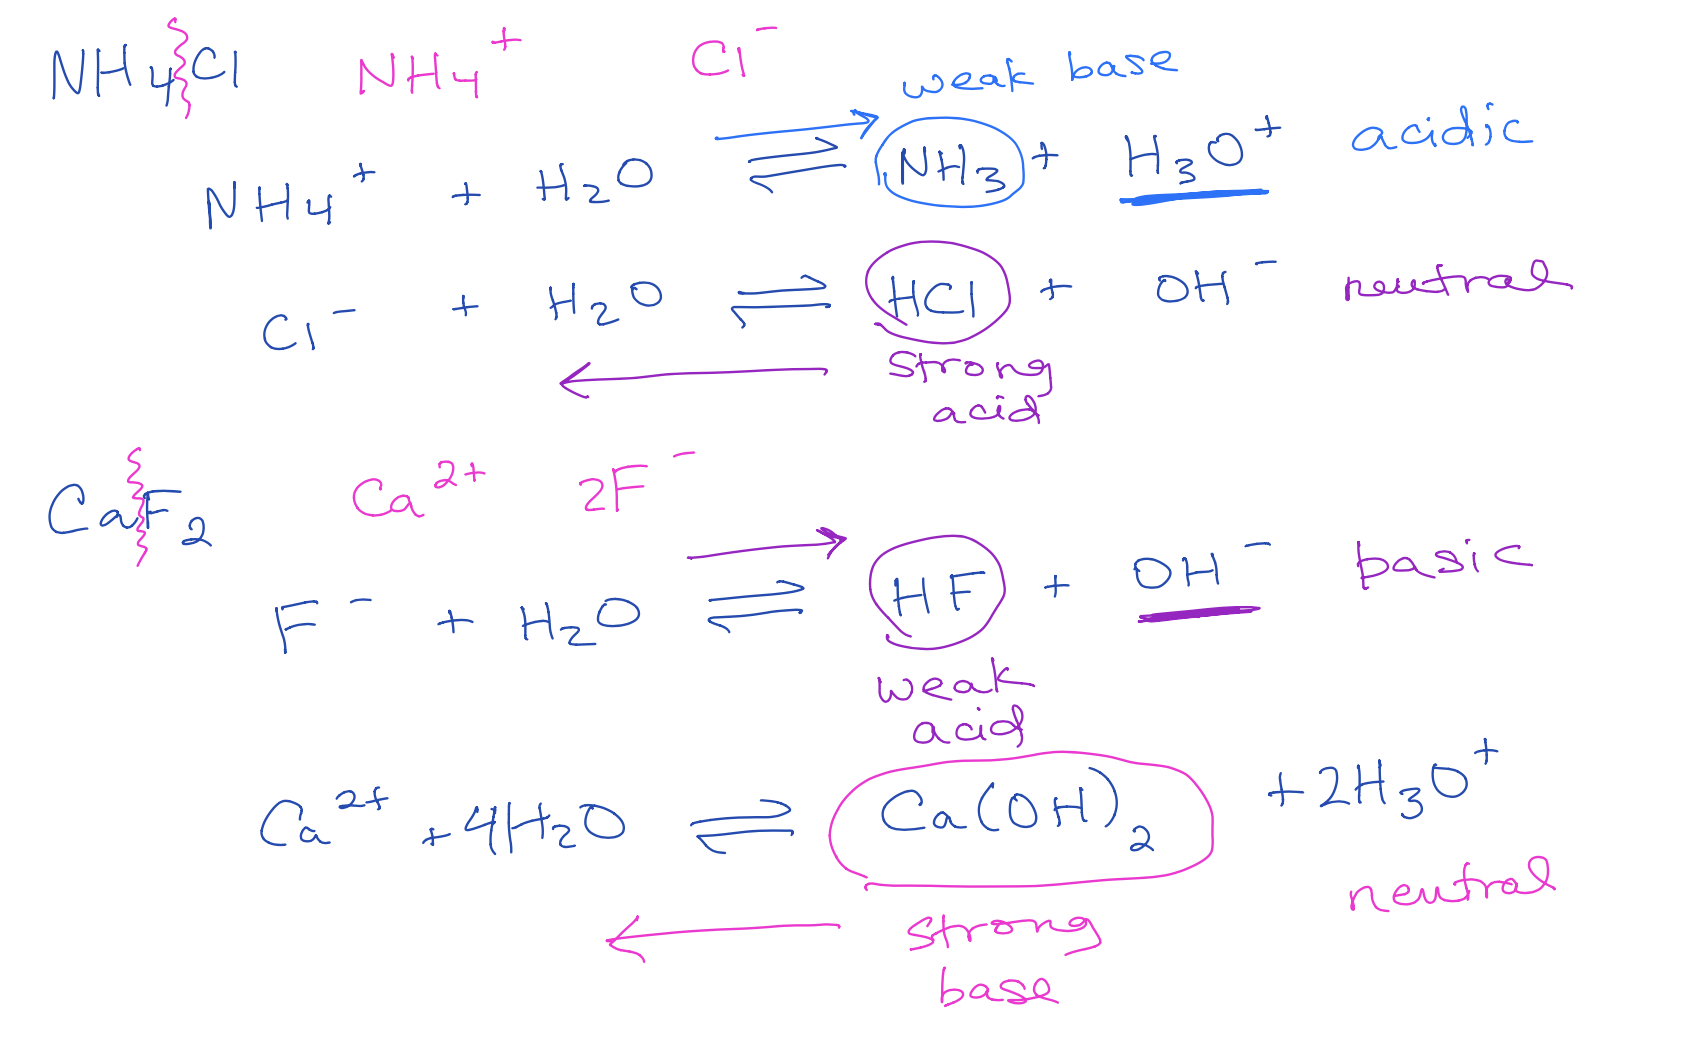 NH₄Cl NH₄⁺ Cl⁻
weak base
NH₄⁺ + H₂O ⇌ NH₃ + H₃O⁺ acidic
Cl⁻ + H₂O ⇌ HCl + OH⁻ neutral
strong
acid
CaF₂ Ca²⁺ 2F⁻
F⁻ + H₂O ⇌ HF + OH⁻ basic
weak
acid
Ca²⁺ + 4H₂O ⇌ Ca(OH)₂ + 2H₃O⁺
neutral
strong
base